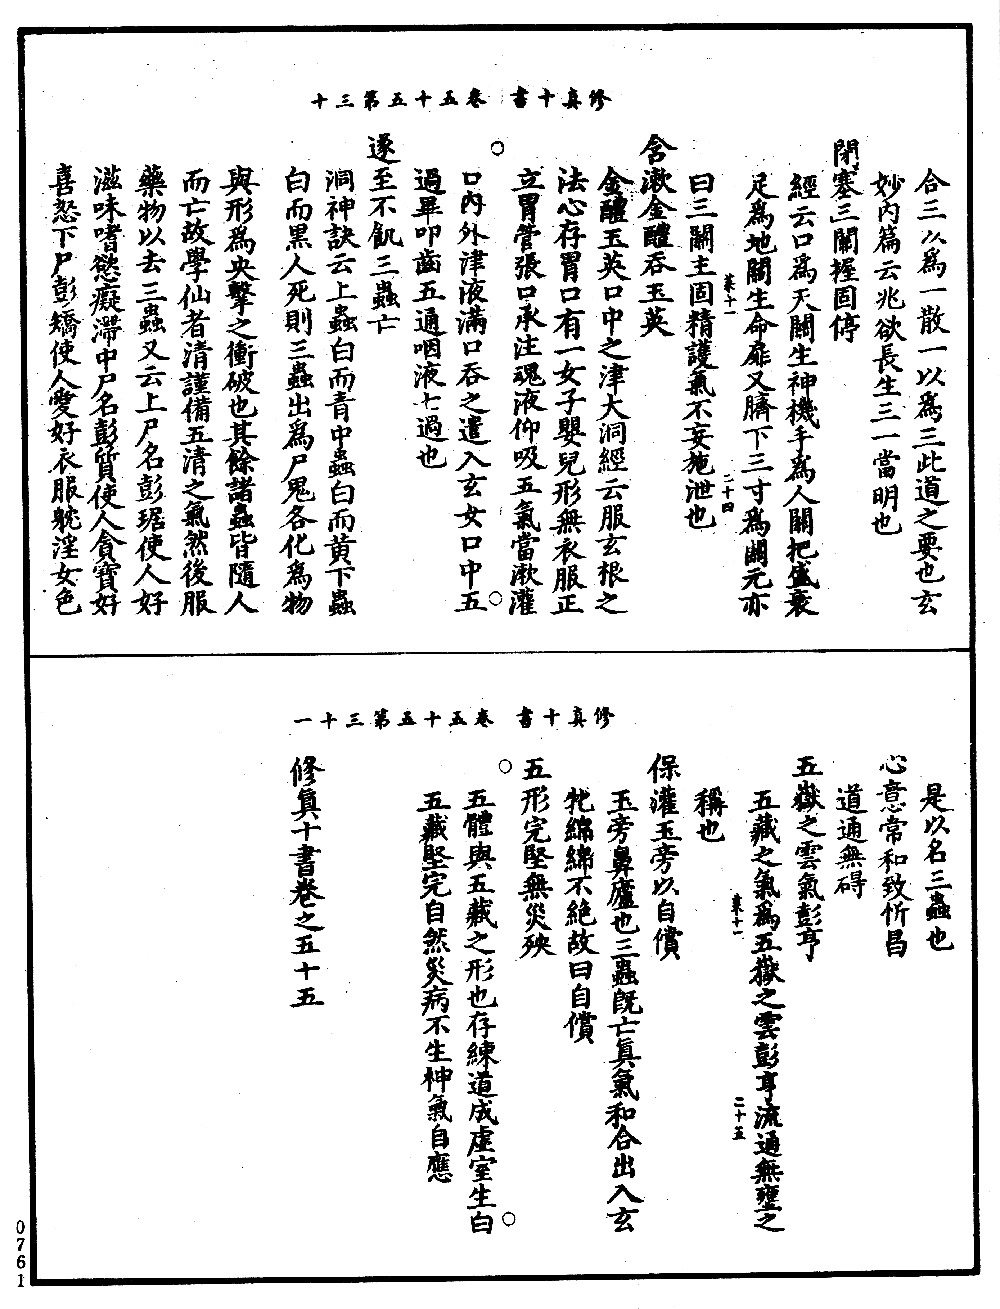 修真十書 卷五十五第三十
合三以爲一散一以爲三此道之要也玄
妙内篇云兆欲長生三一當明也
閉塞三關握固停
經云口爲天關生神機手爲人關把盛衰
足爲地關生命扉又臍下三寸爲關元亦
菜十一 二十四
曰三關主固精護氣不妄施泄也
含漱金醴吞玉英
金醴玉英口中之津大洞經云服玄根之
法心存胃口有一女子嬰兒形無衣服正
立胃管張口承注魂液仰吸五氣當漱灌
口内外津液滿口吞之遣入玄女口中五
過畢叩齒五通咽液七過也
遂至不飢三蟲亡
洞神訣云上蟲白而青中蟲白而黄下蟲
白而黑人死則三蟲出爲尸鬼各化爲物
與形爲央擊之衝破也其餘諸蟲皆隨人
而亡故學仙者清謹備五清之氣然後服
藥物以去三蟲又云上尸名彭琚使人好
滋味嗜慾癡滯中尸名彭質使人貪寶好
喜怒下尸彭矯使人愛好衣服躭淫女色
修真十書 卷五十五第三十一
是以名三蟲也
心意常和致忻昌
道通無碍
五嶽之雲氣彭亨
五藏之氣爲五嶽之雲彭亨流通無壅之
菜十一 二十五
稱也
保灌玉旁以自償
玉旁鼻廬也三蟲既亡真氣和合出入玄
牝綿綿不絶故曰自償
五形完堅無災殃
五體與五藏之形也存練道成虛室生白
五藏堅完自然災病不生神氣自應
修真十書卷之五十五
0761